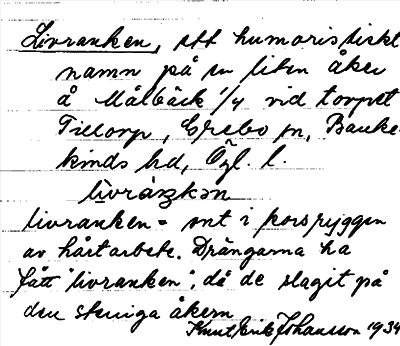 Livranken, ett humoristiskt
namn på en liten åker
å Målbäck 1/4 vid torpet
Tillorp, Grebo sn, Banke-
kinds hd, Ögl l.
livràŋkən
livranken = ont i korsryggen
av hårt arbete. Drängarna ha
fått "livranken", då de slagit på
den steniga åkern
Knut Erik Johansson 1934